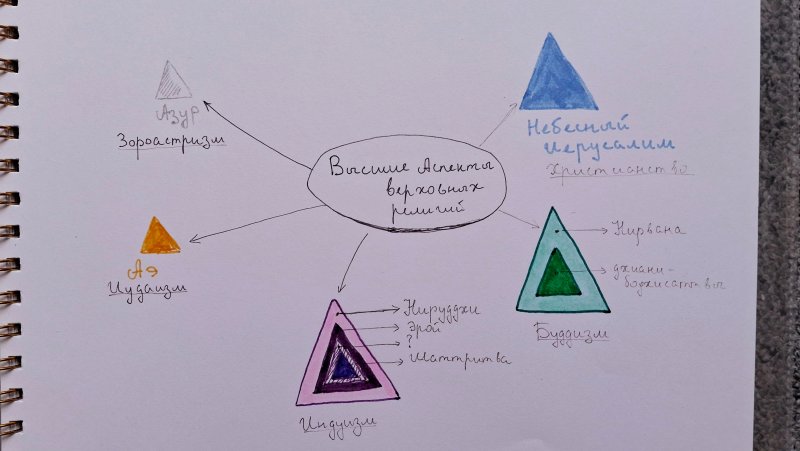 Высшие Аспекты
верховных
религий
Азур
Зороастризм
Небесный
Иерусалим
Христианство
Ая
Иудаизм
Нирвана
дхиани-
бодхисатвы
Буддизм
Нируддхи
Эрой
?
Шаттритва
Индуизм